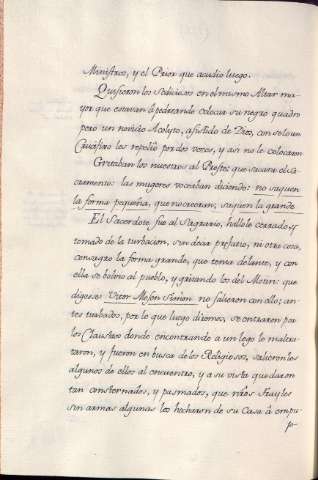 Ministros, y el Prior que acudio luego.
Quisieron los Sediciosos en el mismo Altar ma-
yor que estavan apedreando colocar su negro quadro
pero un novicio Acolyto, asistido de Dios, con solo un
Crucifixo les repelió por dos veces, y asi no le colocaron
Gritaban los nuestros al Preste que sacara el Sa-
cramento: las mugeres voceaban diciendo: no saquen
la forma pequeña, que no creeran, saquen la grande
El Sacerdote fue al Sagrario, hallóle cerrado, y
tomado de la turbacion, sin decir prefacio, ni otra cosa,
consagró la forma grande, que tenia delante, y con
ella se bolvio al pueblo, y gritando los del Motin: que
digesen: Vitor Mosen Simon no salieron con ello; an-
tes turbados, por lo que luego diremos, se entraron por
los Claustros donde encontrando a un lego le maltra-
taron, y fueron en busca de los Religiosos, salieronles
algunos de ellos al encuentro, y a su vista quedaron
tan consternados, y pasmados, que nros Frayles
sin armas algunas los hecharon de su Casa â empu